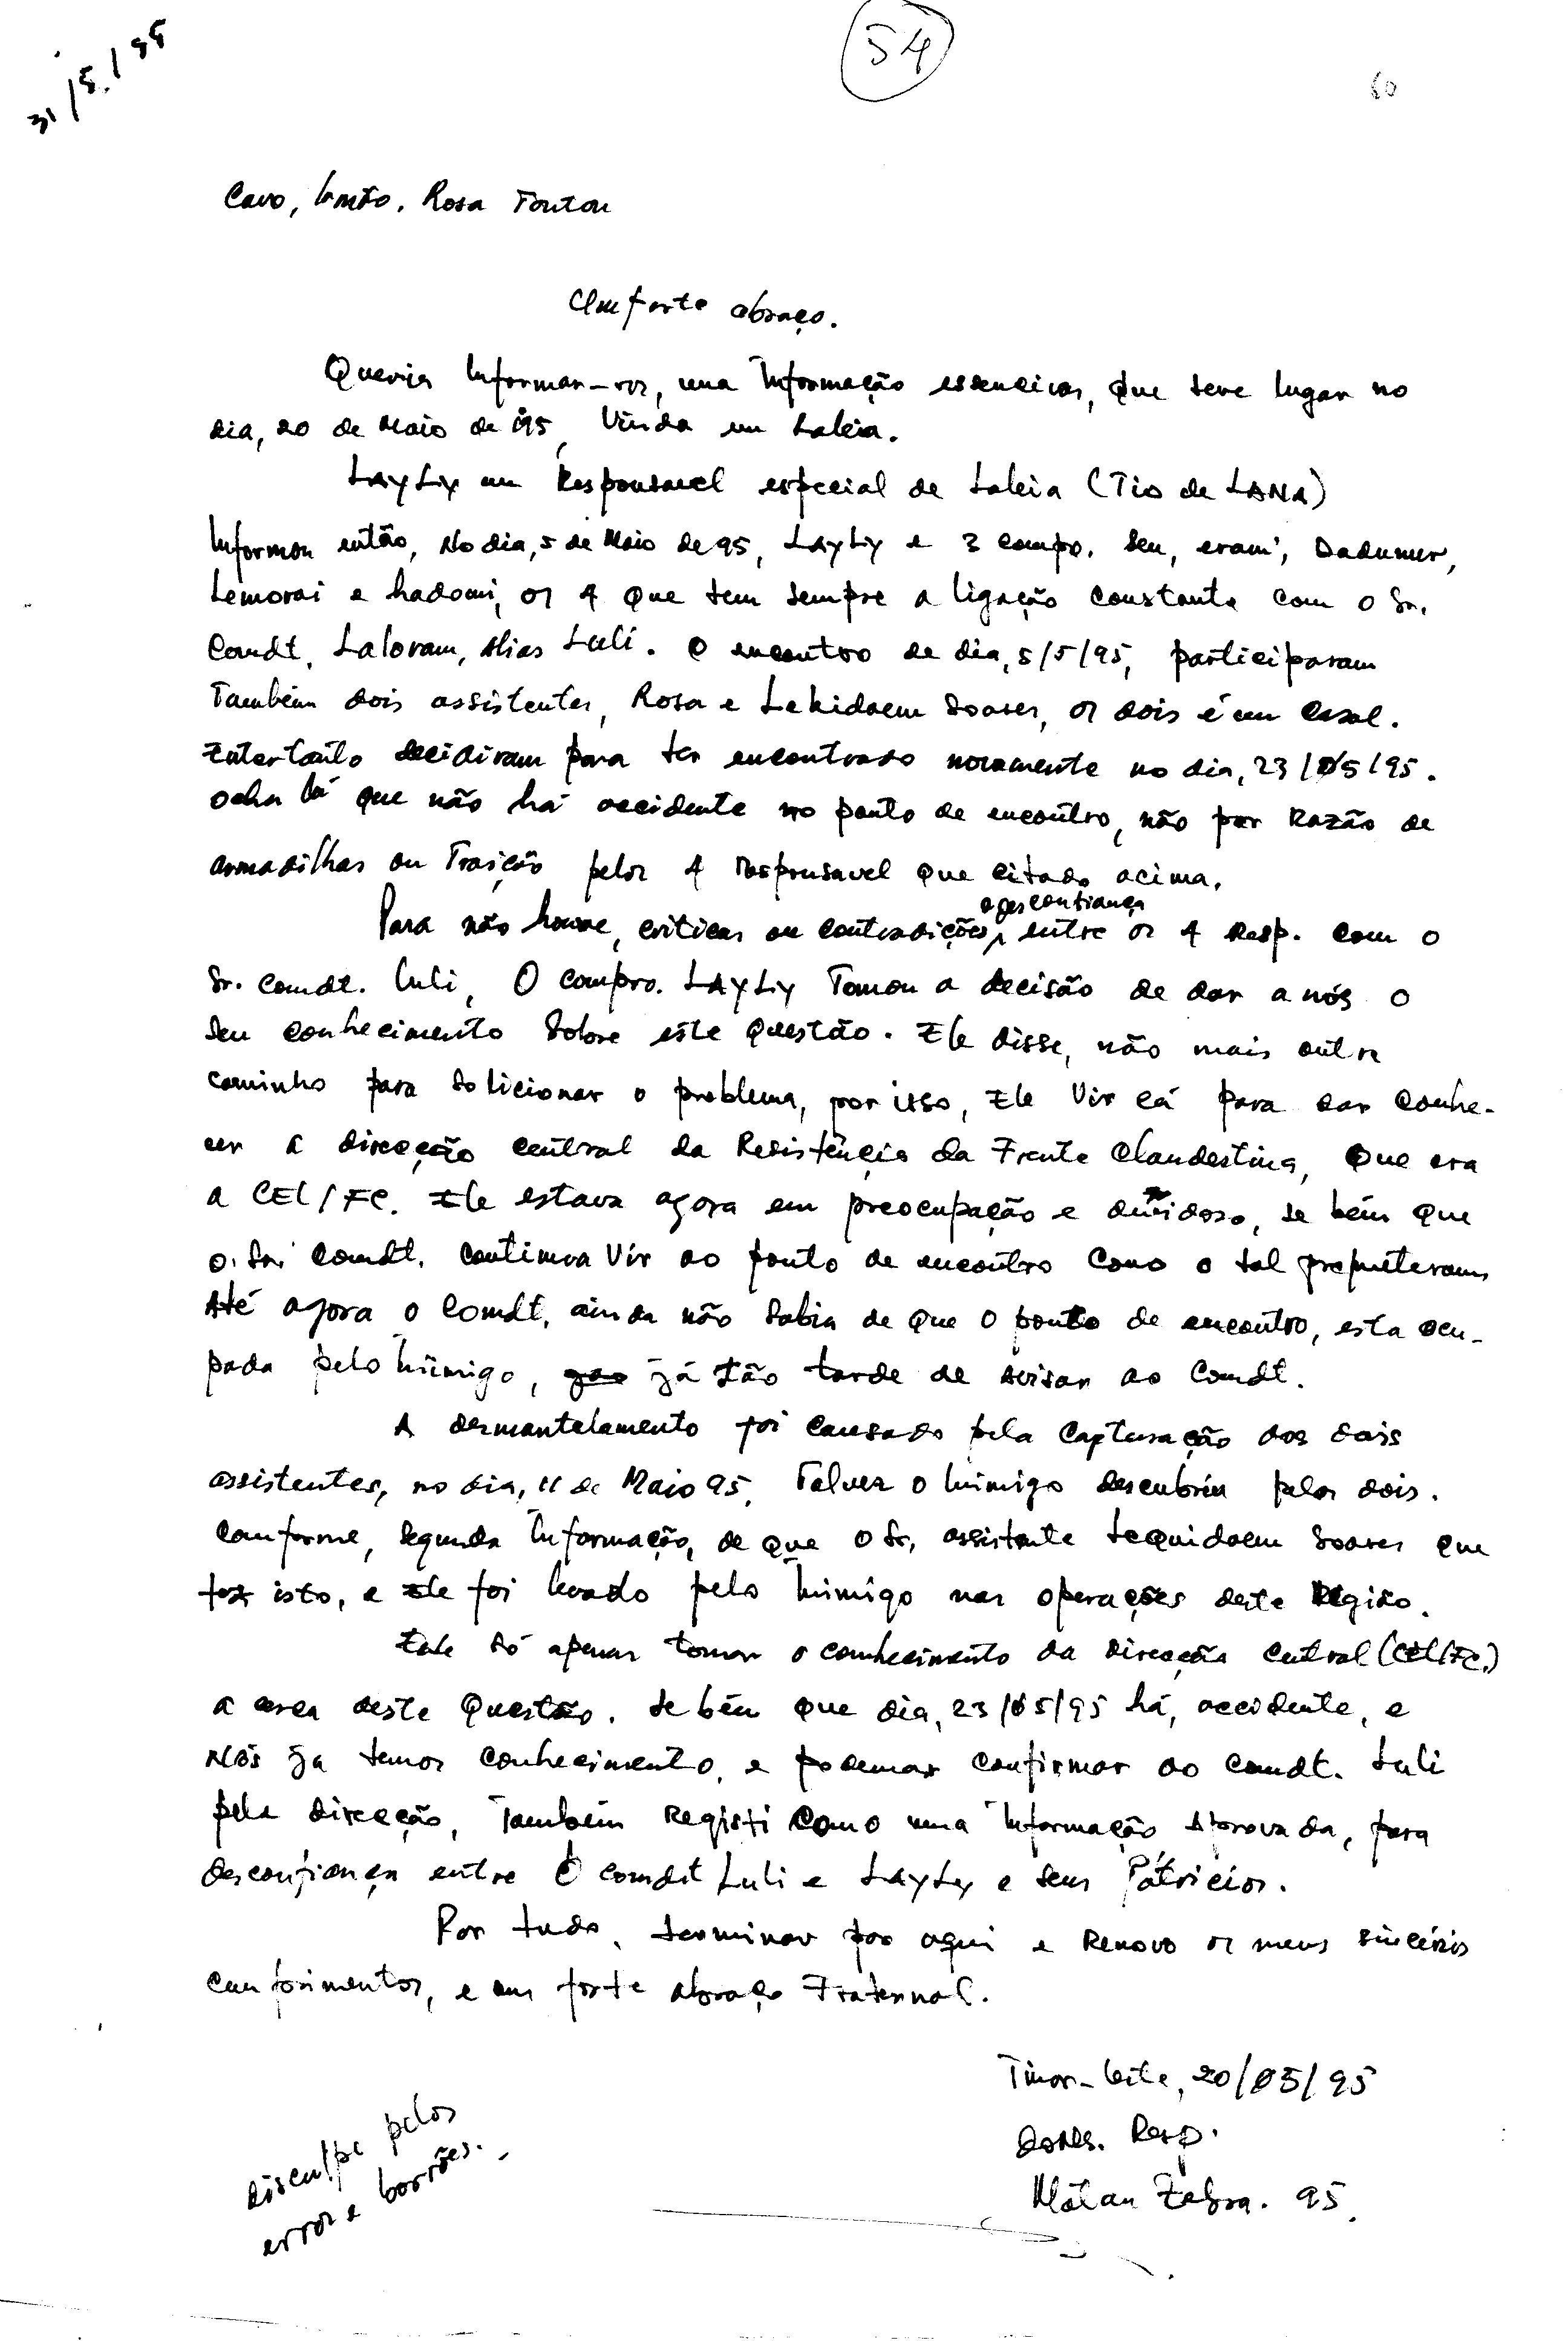 31/5/95
54
60
Caro, Irmão. Rosa Tontou
Um forte abraço.
Queria Informar-vos, uma Informação essenciais, que teve lugar no
dia, 20 de Maio de 95, Vinda em Laleia.
LayLy um Responsavel especial de Laleia (Tio de LANA)
Informou então, No dia, 5 de Maio de 95, LayLy e 3 compo. Seu, eram, Dadumur,
Lemorai e hadomi, os 4 que tem sempre a ligação constante com o Sr.
Comdt. Laloram, Alias Luli. O encontro de dia, 5/5/95, participaram
Também dois assistentes, Rosa e Lekidoem Soares, os dois é um casal.
Entertanto decidiram para ter encontrado novamente no dia, 23/05/95.
Acha lá que não há accidente no ponto de encontro, não por Razão de
armadilhas ou Traição pelos 4 Responsavel que citado acima.
a desconfiança
Para não houve, criticas ou contradições, entre os 4 Resp. com o
Sr. Comdt. Luli, O compo. LayLy Tomou a decisão de dar a nós o
seu conhecimento sobre este questão. Ele disse, não mais outro
caminho para solicionar o problema, por isso, Ele Vir cá para dar conhe-
cer a direcção central da Resistência da Frente Clandestina, que era
a CEL/FC. Ele estava agora em preocupação e duvidoso, se bém que
o. Sr. Comdt. continua Vir ao ponto de encontro como o tal prometeram.
Até agora o Comdt. ainda não sabia de que o ponto de encontro, esta ocu-
pada pelo Inimigo, já tão tarde de avisar ao Comdt.
A desmantelamento foi causado pela capturação dos dois
assistentes, no dia, 11 de Maio 95. Talvez o Inimigo descobriu pelos dois.
Conforme, segunda Informação, de que o Sr. assistente Lequidoem Soares que
fez isto, e Ele foi levado pelo Inimigo nas operações deste Região.
Ele só apenas tomar o conhecimento da direcção central (CEL/FC.)
a cerca deste Questão. Se bém que dia, 23/05/95 há, accidente, e
Nós já temos conhecimento, e podemos confirmar ao Comdt. Luli
pela direcção, Também Registi como uma Informação Aprovada, para
desconfiança entre O comdt Luli e LayLy e seus Pátricios.
Por tudo, terminar por aqui e Renovo os meus sincéris
cumprimentos, e um forte abraço Fraternal.
Timor-Leste, 20/05/95
Resp.
Mátan Zebra. 95.
disculpe pelos
error e borrões.